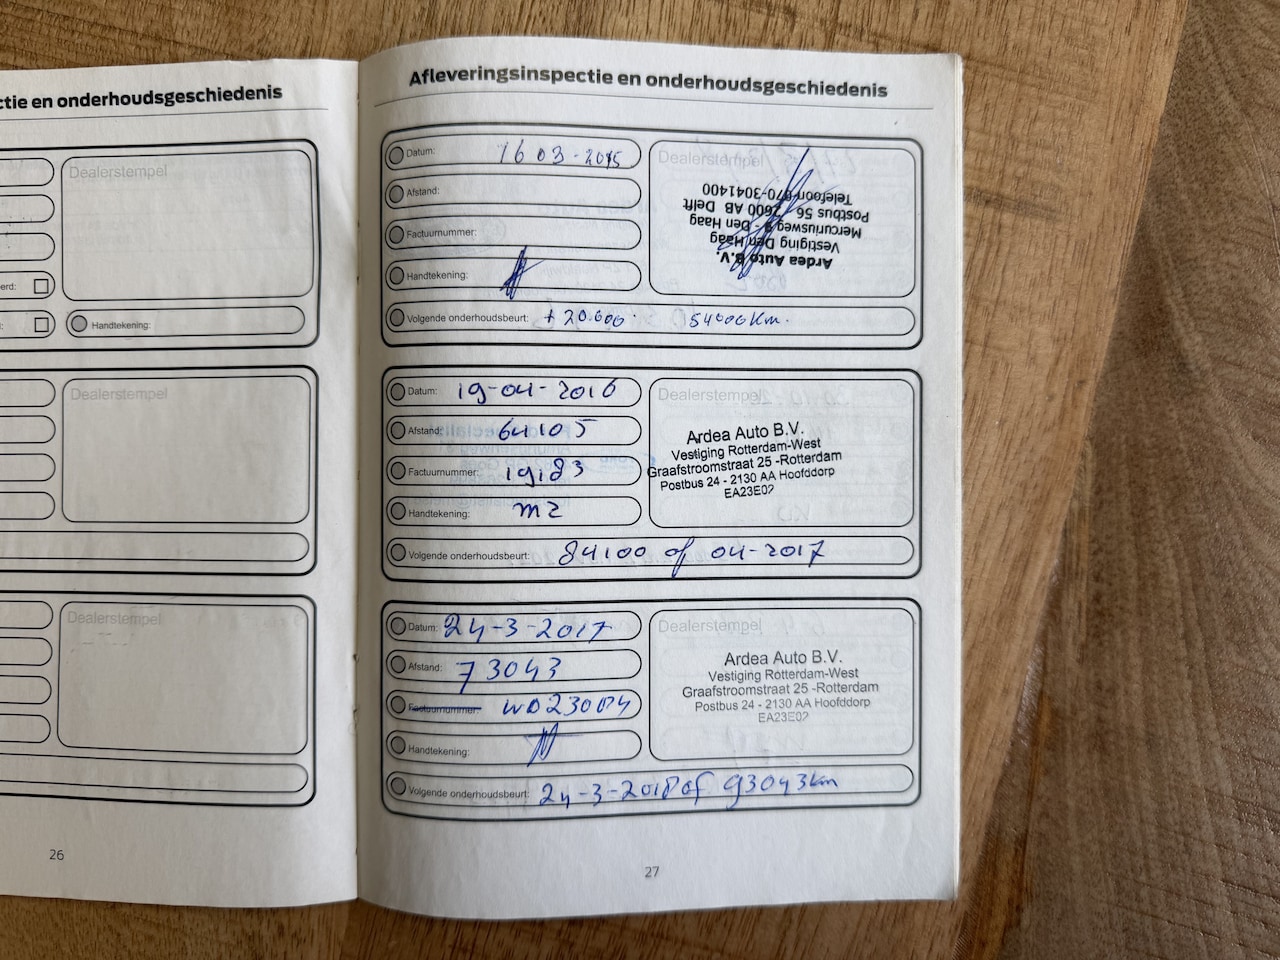 ctie en onderhoudsgeschiedenis
Dealerstempel
erd:
Handtekening:
Dealerstempel
Dealerstempel
26
Afleveringsinspectie en onderhoudsgeschiedenis
Datum: 16 03-2015
Afstand:
Factuurnummer:
Handtekening:
Dealerstempel
Ardea Auto B.V.
Vestiging Den Haag
Mercuriusweg - Den Haag
Postbus 56 2600 AB Delft
Telefoon 070-3041400
Volgende onderhoudsbeurt: + 20.000 54000Km.
Datum: 19-04-2016
Afstand: 64105
Factuurnummer: 19183
Handtekening: mz
Dealerstempel
Ardea Auto B.V.
Vestiging Rotterdam-West
Graafstroomstraat 25 -Rotterdam
Postbus 24 - 2130 AA Hoofddorp
EA23E02
Volgende onderhoudsbeurt: 84100 of 04-2017
Datum: 24-3-2017
Afstand: 73043
Factuurnummer:
Handtekening:
Dealerstempel
Ardea Auto B.V.
Vestiging Rotterdam-West
Graafstroomstraat 25 -Rotterdam
Postbus 24 - 2130 AA Hoofddorp
EA23E02
Volgende onderhoudsbeurt: 24-3-2018 of 93043km
27